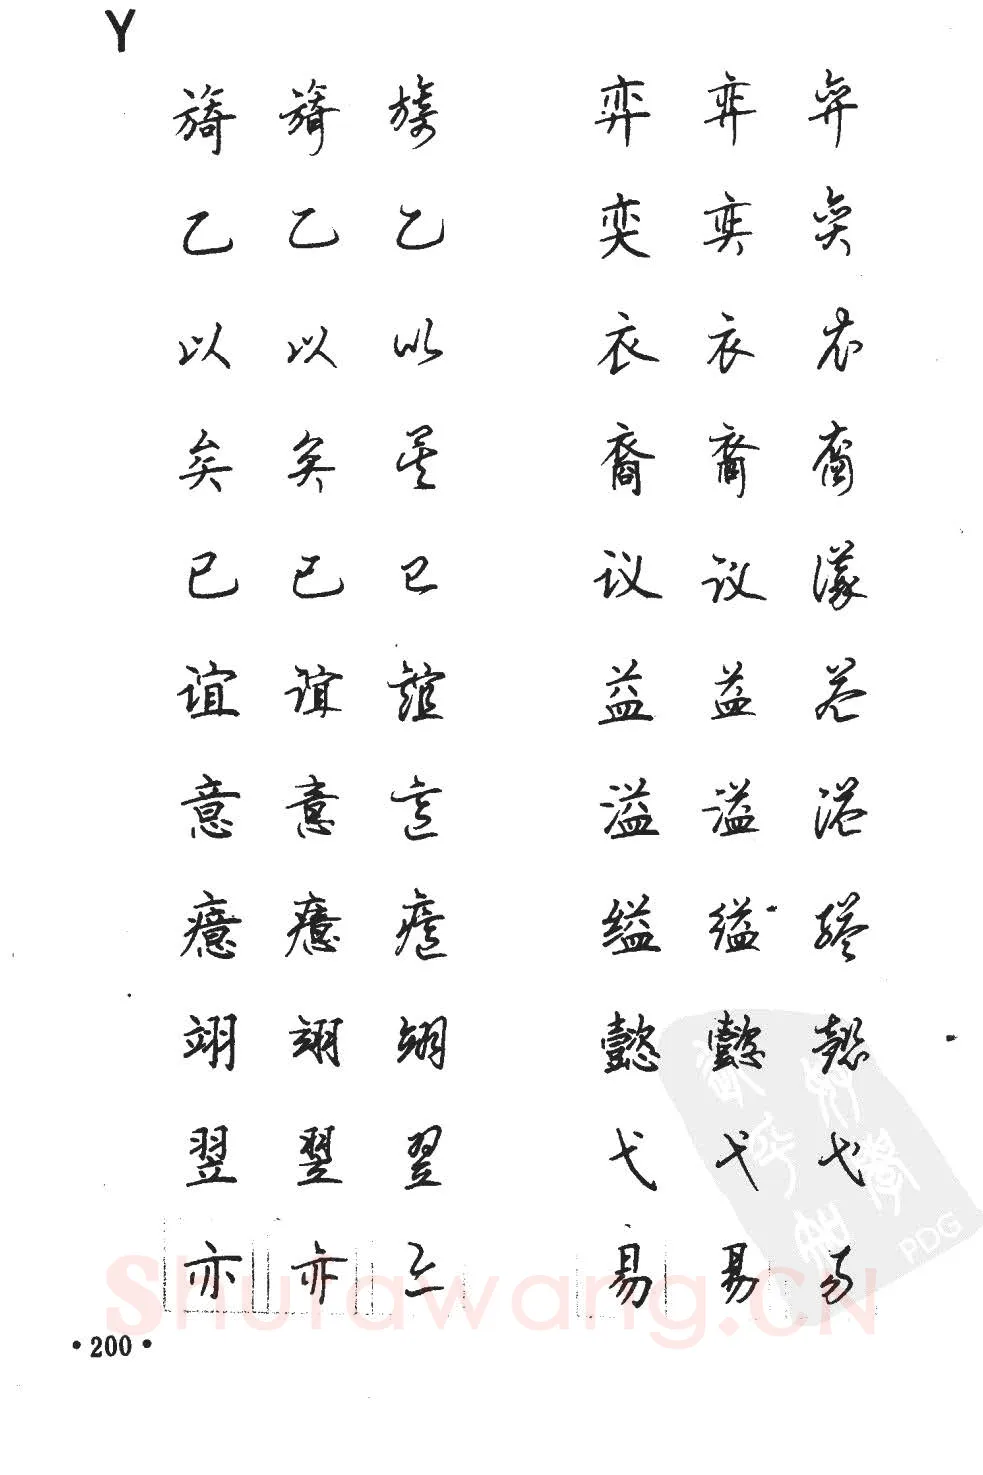 Y
旖 旖 旖 弈 弈 弈
乙 乙 乙 奕 奕 奕
以 以 以 衣 衣 衣
矣 矣 矣 裔 裔 裔
已 已 已 议 议 議
谊 谊 誼 益 益 益
意 意 意 溢 溢 溢
癔 癔 癔 缢 缢 縊
翊 翊 翊 懿 懿 懿
翌 翌 翌 弋 弋 弋
亦 亦 亦 易 易 易
·200·
Shufawang.CN
PDG